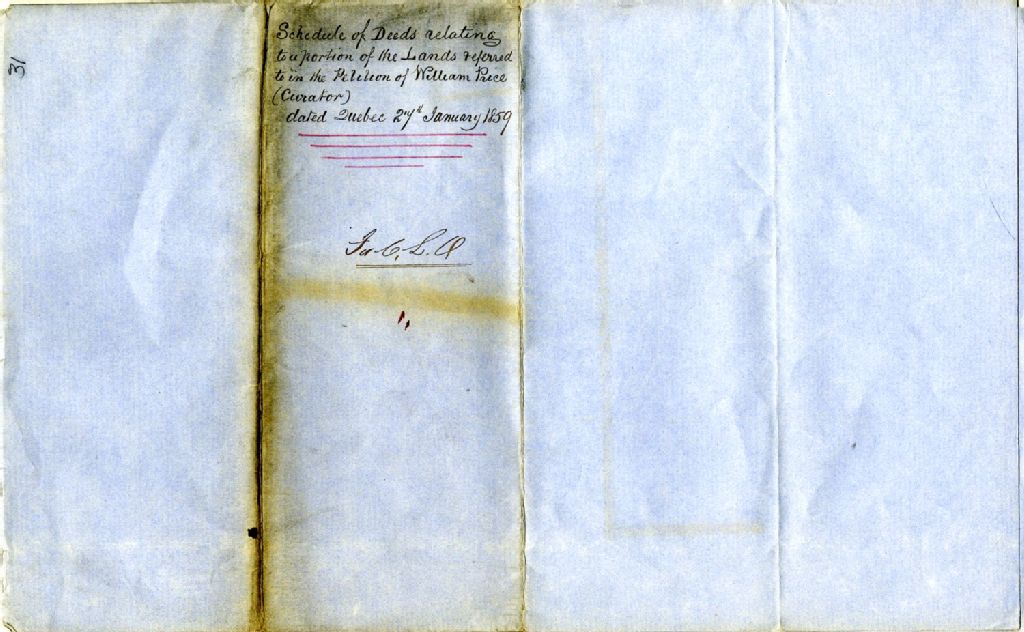 31
Schedule of Deeds relating
to a portion of the Lands referred
to in the Petition of William Price
(Curator)
dated Quebec 27th January 1859
For C. L. O